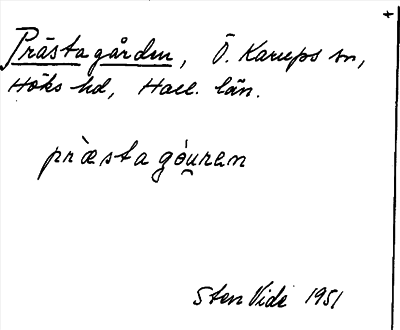 +
Prästagården, Ö. Karups sn,
Höks hd, Hall. län.
præ̀sta gó̀u̯ren
Sten Vide 1951